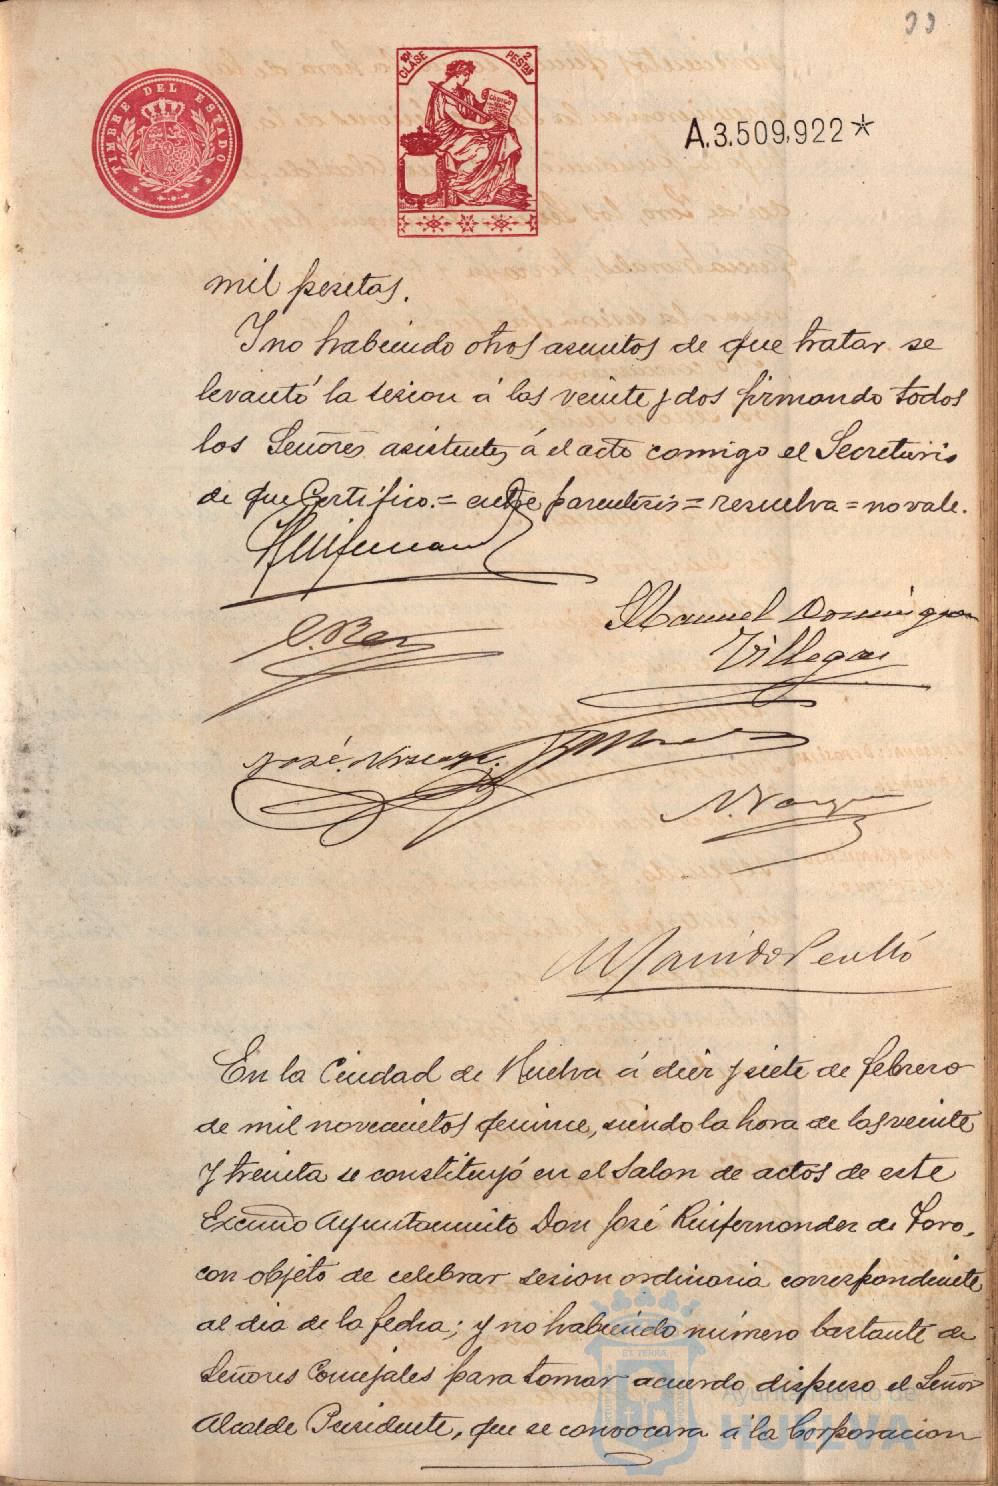 TIMBRE DEL ESTADO
10ª CLASE
2 PESTAS
CODIGO
A.3.509,922*
mil pesetas.
Y no habiendo otros asuntos de que tratar se
levantó la sesion á las veinte y dos firmando todos
los Señores asistentes á el acto conmigo el Secretario
de que Certifico.= entre parentesis = resuelva = no vale.
Ruifernandez
Manuel Dominguez
Villegas
José
N. Vazquez
Garrido Perelló
En la Ciudad de Huelva á diez y siete de febrero
de mil novecientos quince, siendo la hora de las veinte
y treinta se constituyó en el Salon de actos de este
Excmo Ayuntamiento Don José Ruifernandez de Toro,
con objeto de celebrar sesion ordinaria correspondiente
al dia de la fecha; y no habiendo número bastante de
Señores Concejales para tomar acuerdo dispuso el Señor
Alcalde Presidente, que se convocara á la Corporacion
Ayuntamiento de
HUELVA